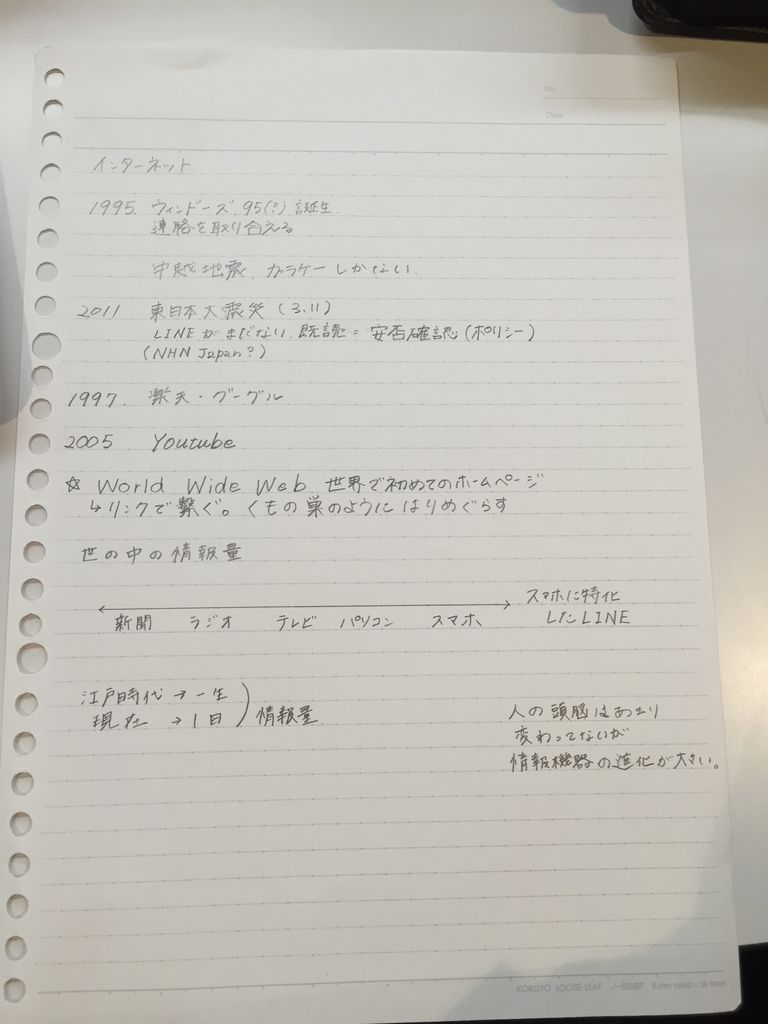 No.
Date
インターネット
1995. ウィンドーズ 95(?) 誕生.
連絡を取り合える
中越地震. ガラケーしかない.
2011 東日本大震災 (3.11)
LINEがまだない. 既読 = 安否確認 (ポリシー)
(NHN Japan?)
1997. 楽天・グーグル
2005 Youtube
☆ World Wide Web 世界で初めてのホームページ
↳ リンクで繋ぐ。くもの巣のようにはりめぐらす
世の中の情報量
新聞 ラジオ テレビ パソコン スマホ
スマホに特化
したLINE
江戸時代 → 一生
現在 → 1日 ) 情報量
人の頭脳はあまり
変わってないが
情報機器の進化が大きい。
KOKUYO LOOSE-LEAF ノ-836BT 6 mm ruled × 36 lines